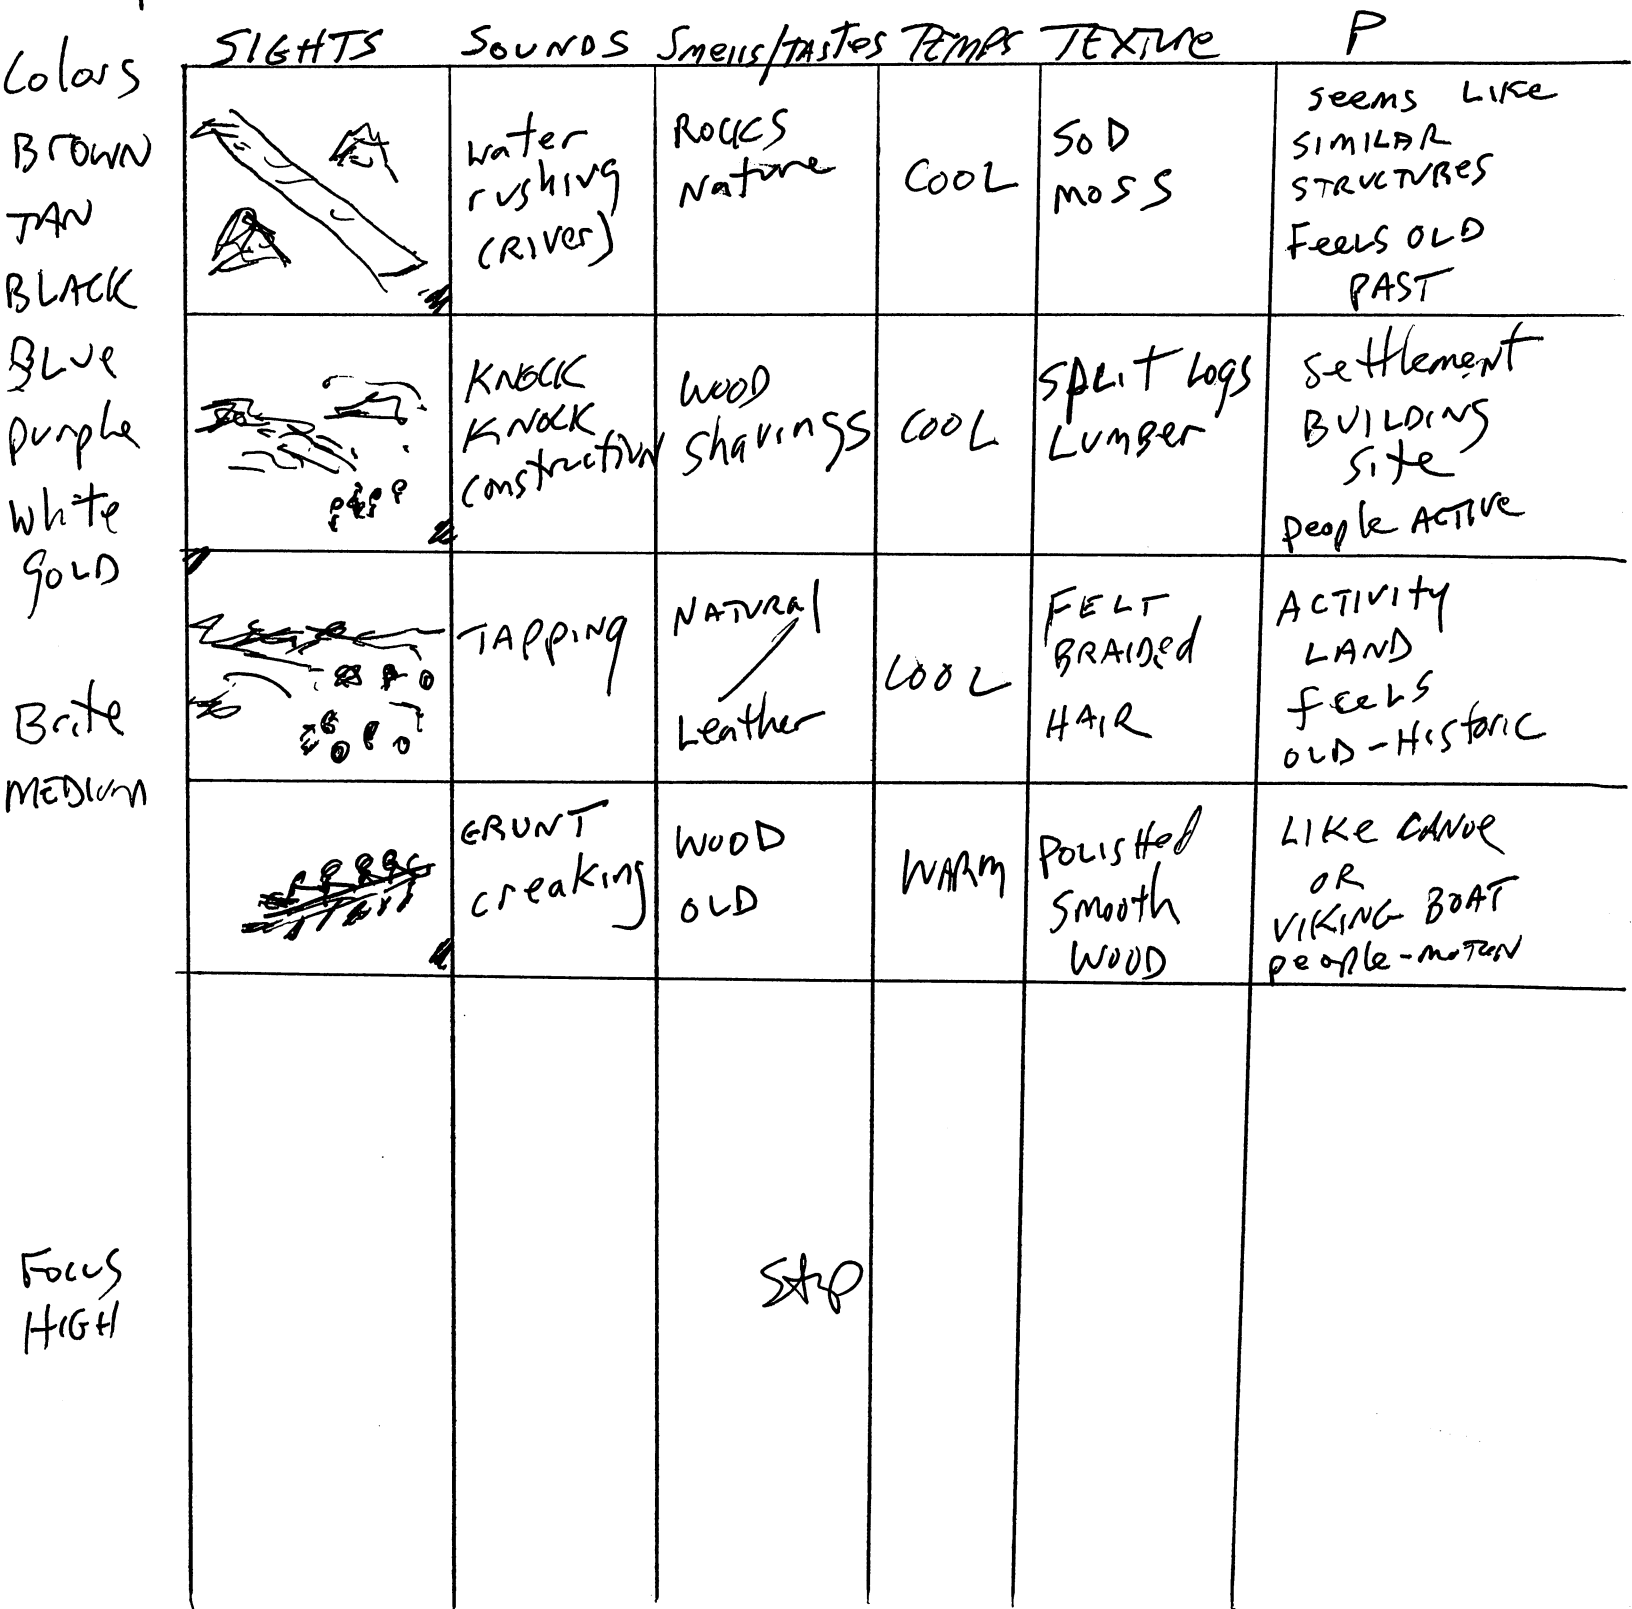 SIGHTS SOUNDS Smells/TASTES TEMPS TEXTURE P
Colors
BROWN
TAN
BLACK
BLUe
purple
White
GOLD
Brite
MEDIUM
FOCUS
HIGH
water
rushing
(RIVer)
ROCKS
Nature
COOL
SOD
MOSS
seems LIKe
SIMILAR
STRUCTURES
FeeLS OLD
PAST
KNOCK
KNOCK
construction
WOOD
shavings
COOL
SPLIT LOGS
LUMBer
Settlement
BUILDING
Site
people ACTIVe
TAPPING
NATURAL
Leather
COOL
FELT
BRAIDed
HAIR
ACTIVITY
LAND
feeLS
OLD-HIStoric
GRUNT
creaking
WOOD
OLD
WARM
POLISHed
Smooth
WOOD
LIKe CANOe
OR
VIKING BOAT
people-MOTION
Stop